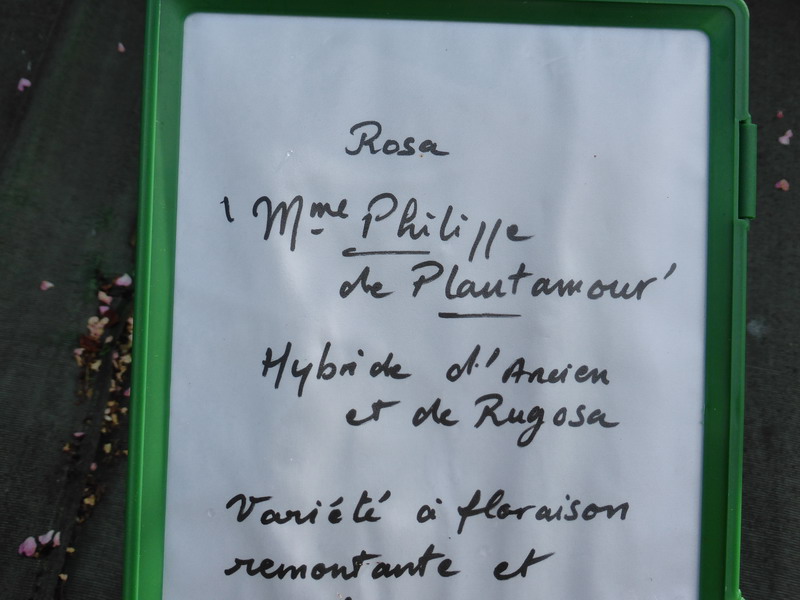 Rosa
'Mme Philippe
de Plantamour'
Hybride d'Ancien
et de Rugosa
Variété à floraison
remontante et